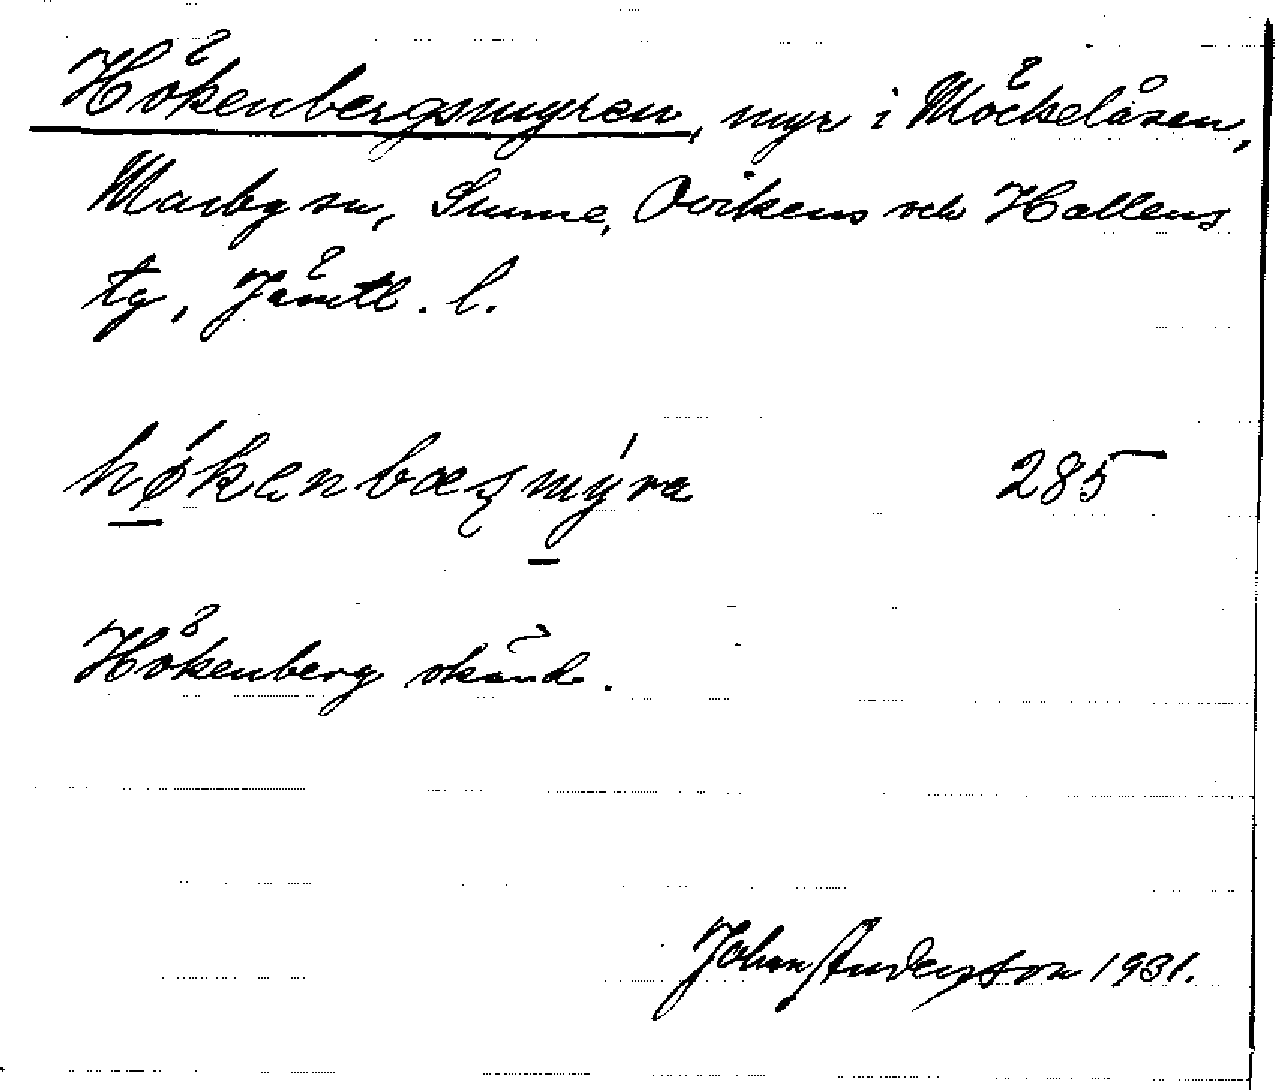 Hökenbergsmyren, myr i Möckelåsen,
Marby sn, Sunne, Ovikens och Hallens
tg, Jämtl. l.
hǿkenbæʂmýra 285
Hökenberg okänd.
Johan Anderson 1931.